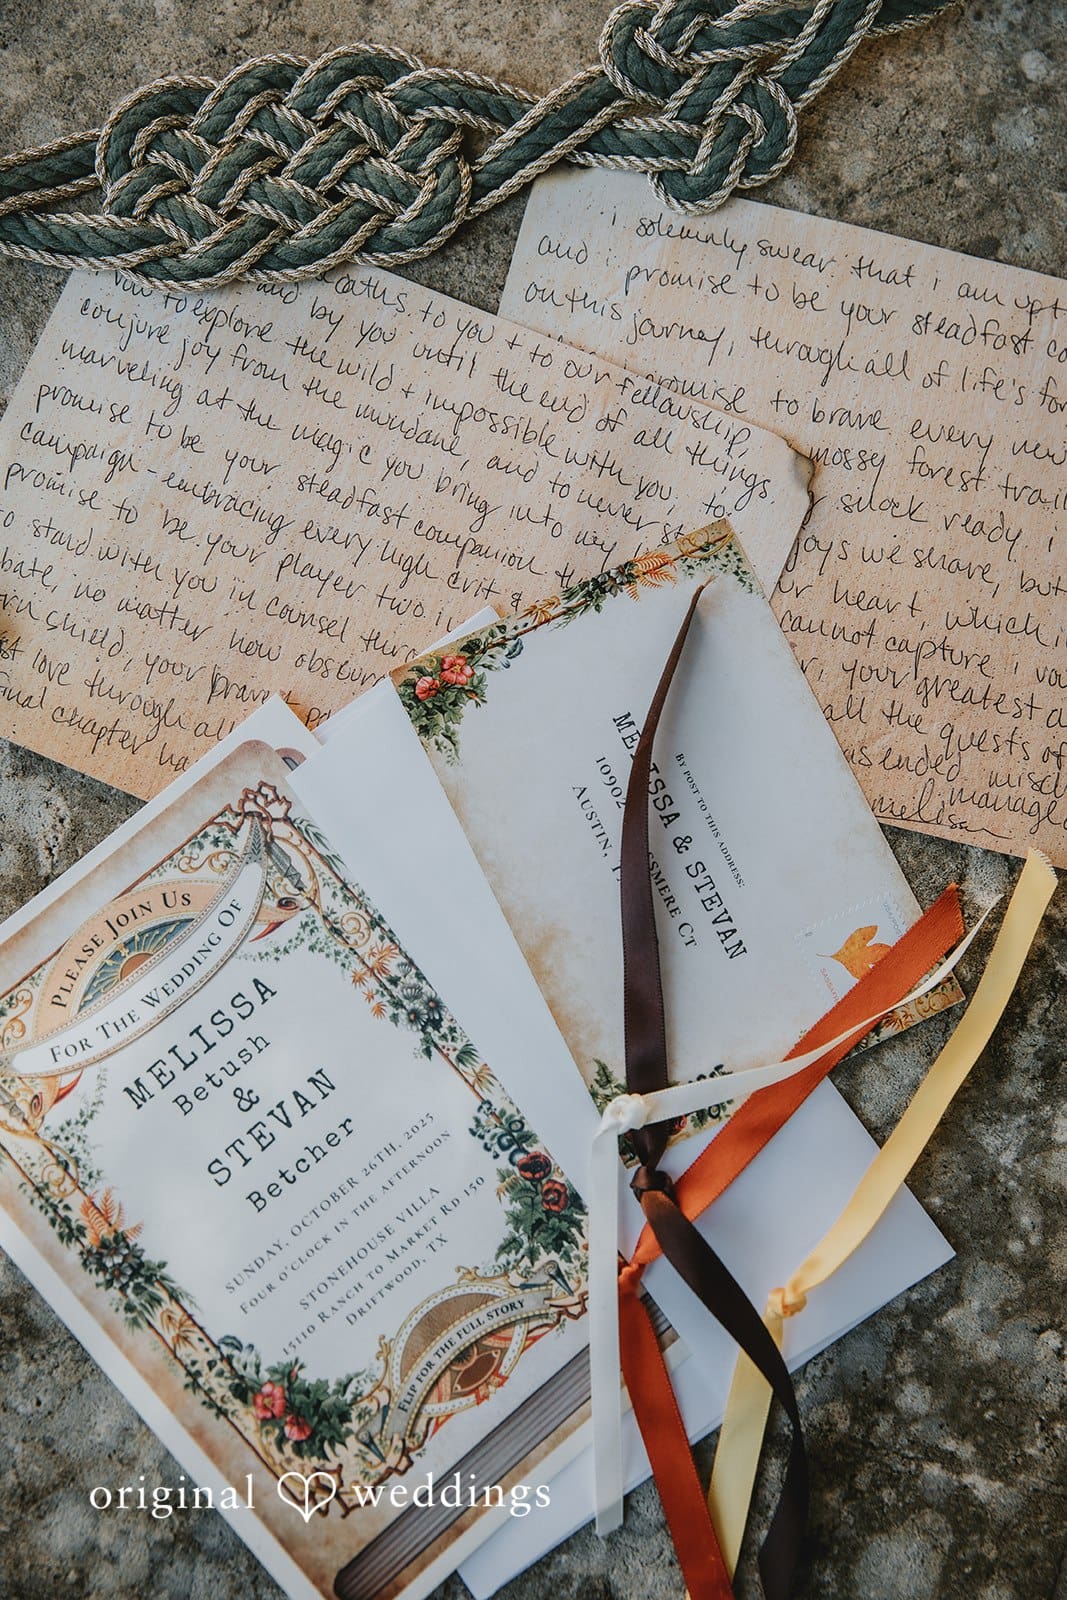 i solemnly swear that i am
and i promise to be your steadfast
on this journey, through all of life's
promise to brave every
mossy forest
snack ready. i
joys we share, but
heart, which
cannot capture. i
your greatest
all the quests of
ended
managed
melissa
oaths to you + to our fellowship,
to explore and by you until the end of all things.
conjure the wild + impossible with you, to
joy from the mundane, and to never
marveling at the magic you bring into my
promise to be your steadfast companion
campaign - embracing every high crit &
promise to be your player two
to stand with you in counsel
no matter how obscure
shield, your
love through all
final chapter
BY POST TO THIS ADDRESS:
MELISSA & STEVAN
10902
CT
AUSTIN,
PLEASE JOIN US
FOR THE WEDDING OF
MELISSA
Betush
&
STEVAN
Betcher
SUNDAY, OCTOBER 26TH, 2025
FOUR O'CLOCK IN THE AFTERNOON
STONEHOUSE VILLA
15110 RANCH TO MARKET RD 150
DRIFTWOOD, TX
FLIP FOR THE FULL STORY
original weddings